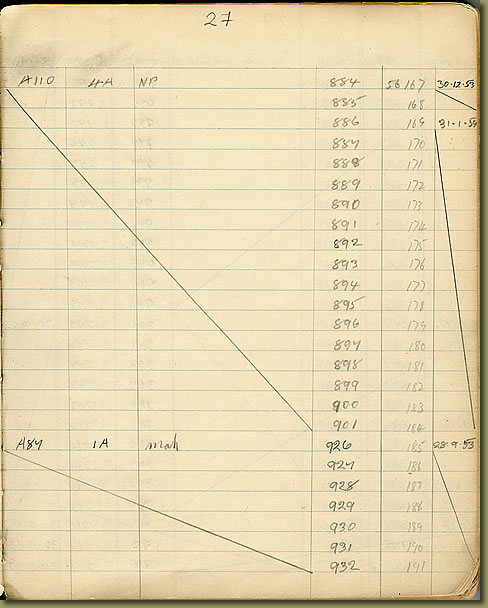 27
A110 4A NP 884 56167 30.12.53
885 168
886 169 31.1.54
887 170
888 171
889 172
890 173
891 174
892 175
893 176
894 177
895 178
896 179
897 180
898 181
899 182
900 183
901 184
A87 1A mah 926 185 28.9.53
927 186
928 187
929 188
930 189
931 190
932 191